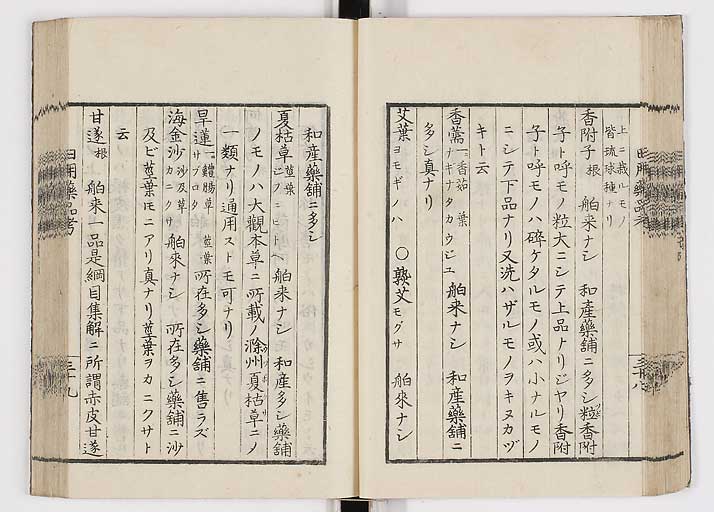 上ニ載ルモノ
皆琉球種ナリ
香附子 根 舶来ナシ 和産藥舖ニ多シ粒香附
子ト呼モノ粒大ニシテ上品ナリジヤリ香附
子ト呼モノハ碎ケタルモノ或ハ小ナルモノ
ニシテ下品ナリ又洗ハザルモノヲキヌカヅ
キト云
香薷 一香茹 葉
ナギナタカウジユ 舶来ナシ 和産藥舖ニ
多シ真ナリ
艾葉 ヨモギノハ 〇熟艾 モグサ 舶来ナシ
和産藥舖ニ多シ
夏枯草 莖葉 舶来ナシ 和産多シ藥舖
ノモノハ大觀本草ニ所載ノ滁州夏枯草ニノ
一類ナリ通用ストモ可ナリ
旱蓮 一鱧腸草 莖葉 所在多シ藥舖ニ售ラズ
海金沙 沙及草
カニクサ 舶来ナシ 所在多シ藥舖ニ沙
及ビ莖葉モニアリ真ナリ莖葉ヲカニクサト
云
甘遂 根 舶来一品是綱目集解ニ所謂赤皮甘遂
日用藥品考
三十八
日用藥品考
三十九